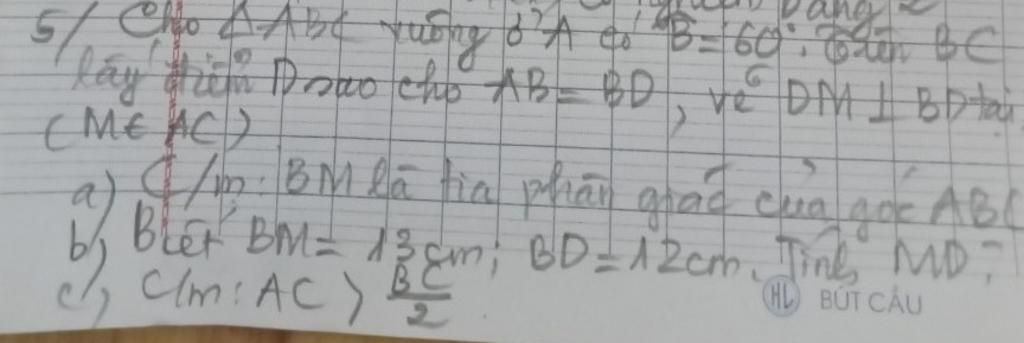 5/ Cho Δ ABC vuông ở A có B̂ = 60°. trên BC
lấy điểm D sao cho AB = BD, vẽ DM ⊥ BD tại
(M ∈ AC)
a) C/m: BM là tia phân giác của góc ABC
b, Biết BM = 13 cm; BD = 12 cm. Tính MD?
c, C/m: AC > BC/2
HL BÚT CẬU